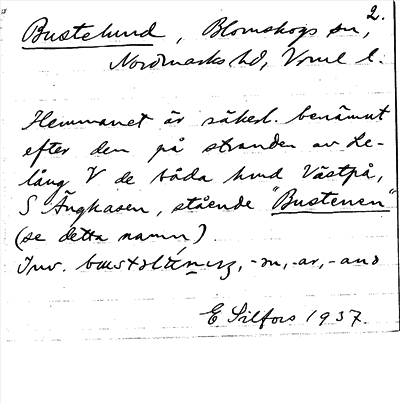 2.
Bustelund, Blomskogs sn,
Nordmarks hd, Vrml l.
Hemmanet är säkerl. benämnt
efter den på stranden av Le-
lång V de båda hmd Västrå,
S Ängkasen, stående "Bustenen"
(se detta namn)
Inv. -ar,
E Silfors 1937.